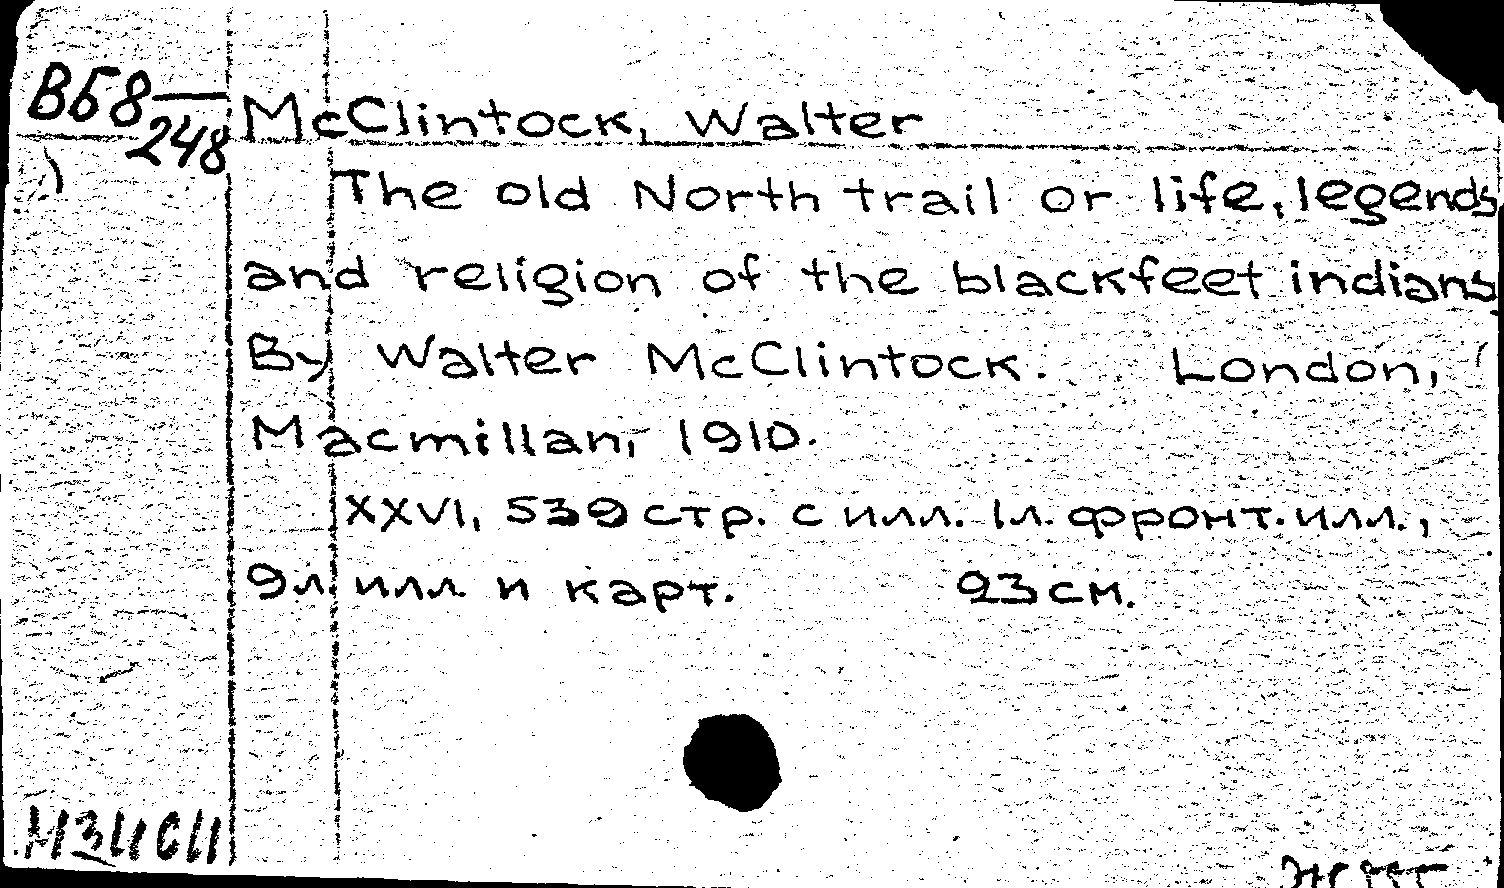 ВБ8—
248
McClintock, Walter
The old North trail or life, legends
and religion of the blackfeet indians
By Walter McClintock. London,
Macmillan, 1910.
XXVI, 539 стр. с илл. 1л. фронт. илл.,
9л илл и карт. 23 см.